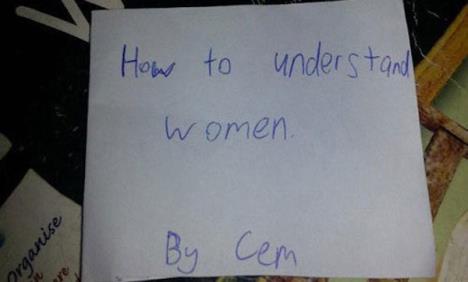 How to understand
women.
By Cem
Organise